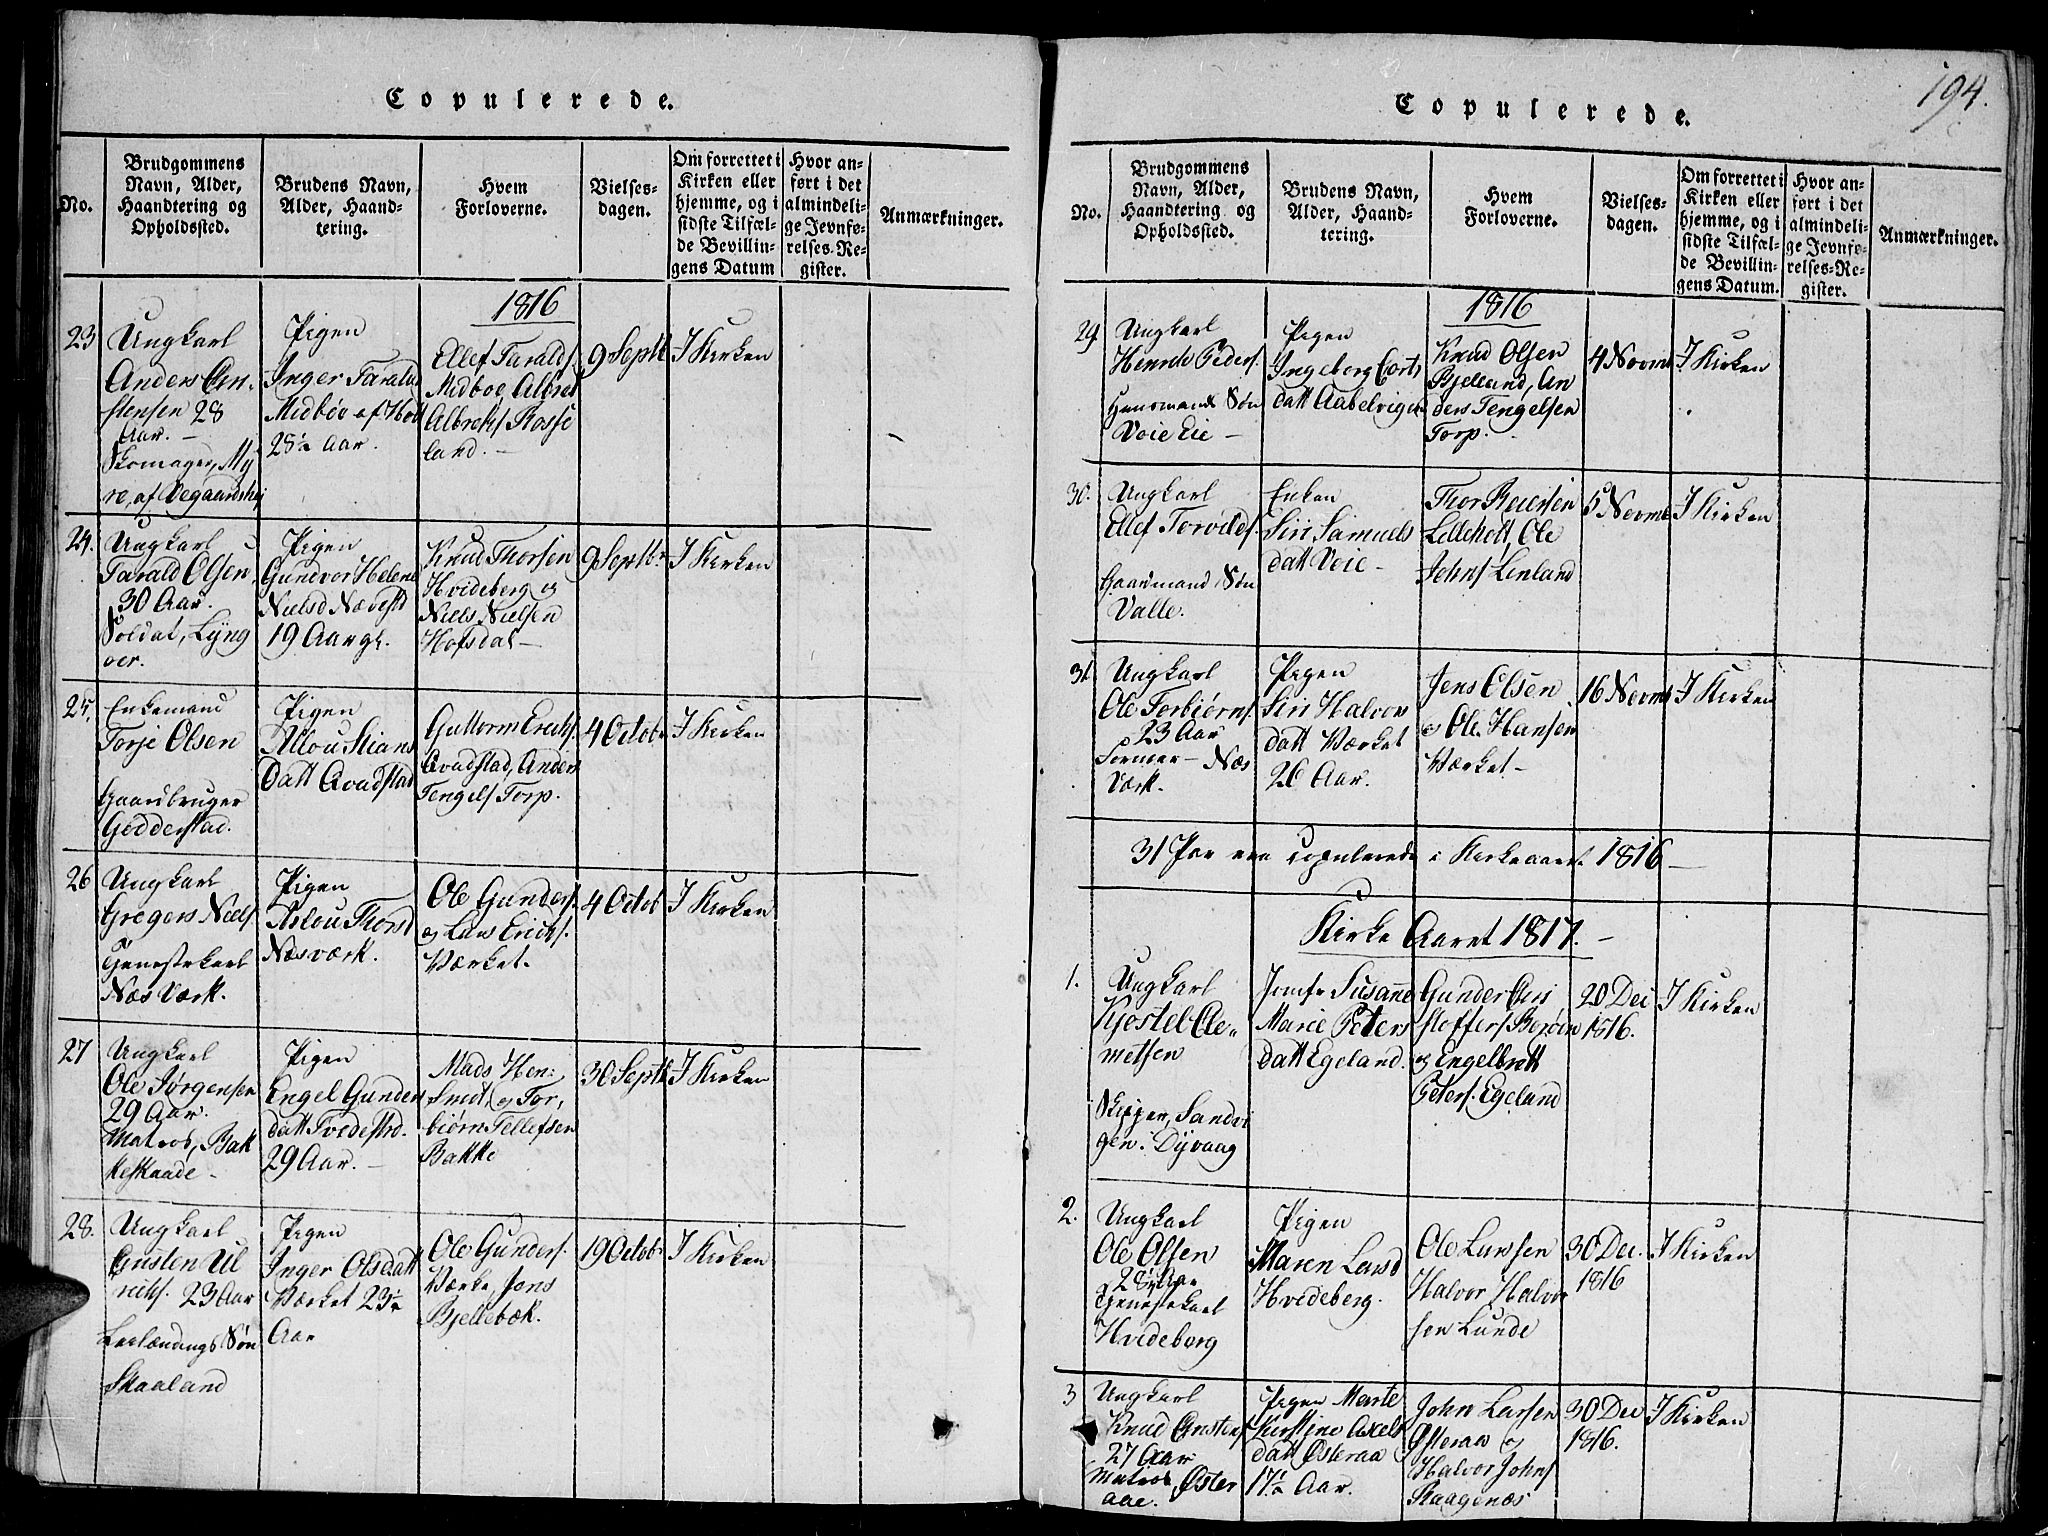 Copulerede.
No.
Brudgommens
Navn, Alder,
Haandtering og
Opholdssted.
Brudens Navn,
Alder, Haand-
tering.
Hvem
Forloverne.
Vielses-
dagen.
Om forrettet i
Kirken eller
hjemme, og i
sidste Tilfæl-
de Bevillin-
gens Datum
Hvor an-
ført i det
almindeli-
ge Jevnfø-
relses-Re-
gister.
Anmærkninger.
1816
23
Ungkarl
Anders
stensen 28
Aar. -
Skomager, My
re, af Vegaardshei
Pigen
Inger Taralds
Midbøe af Holt
28½ Aar.
Ellef Taralds
Midboe, Albret
Albrets Rosse
land. -
9 Septb
I Kirken
24.
Ungkarl
Tarald Olsen
30 Aar.
Soldat, Lyng
oer.
Pigen
Gundvor Helene
Nielsd Næs
19 Aar gl.
Knud Thorsen
Hvideberg og
Niels Nielsen
Hofsdal -
9 Septbr
I Kirken
25.
Enkemand
Torje Olsen
Gaardbruger
Gödderstad.
Pigen
Stians
Datt Qvadstad
Guttorm Erichs
Qvadstad, Anders
Tengels Torp.
4 Octob
I Kirken
26
Ungkarl
Gregers Niels
Tjenestekarl
Næs Værk.
Pigen
Aslou Thorsd
Næsværk.
Ole Gunders.
og Lars Erichs.
Værket.
4 Octob
I Kirken
27
Ungkarl
Ole Jørgensen
29 Aar.
Matros, Bak
keskaade -
Pigen
Engel Gunder
datt Tvedestrd.
29 Aar. -
Mads Hen:
Smit, og Tor,
biörn Tellefsen
Bakke
30 Septb
I Kirken
28.
Ungkarl
Ul
richs. 23 Aar
Leilændings Søn
Skaaland
Pigen
Inger Olsdatt
Værket 23½
Aar
Ole Gunders.
Værke, Jens
Bjellebæk.
19 Octob
I Kirken
194.
Copulerede.
No.
Brudgommens
Navn, Alder,
Haandtering og
Opholdssted.
Brudens Navn,
Alder, Haand-
tering.
Hvem
Forloverne.
Vielses-
dagen.
Om forrettet i
Kirken eller
hjemme, og i
sidste Tilfæl-
de Bevillin-
gens Datum.
Hvor an-
ført i det
almindeli-
ge Jevnfø-
relses-Re-
gister.
Anmærkninger.
1816
29
Ungkarl
Henrik Peders.
Huusmands Søn
Voie Eie -
Pigen
Ingeborg Corts
datt Aabelvigen
Knud Olsen
Bjelland, An
ders Tengelsen
Torp.
4 Novmb
I Kirken
30.
Ungkarl
Ellef
Gaardmand Søn
Valle.
Enken
Siri Samuels
datt Voie -
Thor Reiersen
Lilleholt, Ole
Johns Lenland
5 Novmb
I Kirken
31
Ungkarl
Ole Torbiörns.
23 Aar
Former - Næs
Værk.
Pigen
Siri Halvors
datt Værket
26 Aar.
Jens Olsen
og Ole Hansen
Værket -
16 Novmb
I Kirken
31 Par ere copulerede i Kirkeaaret 1816 -
Kirke Aaret 1817. -
1.
Ungkarl
Kjostel Cle-
metsen
Skipper, Sandvi
gen. Dyvaag
Jomfr Susanne
Marie Peters
datt Egeland.
Gunder Cri
stoffers
og Engelbrett
Peters. Egeland
20 Dec
1816.
I Kirken
2.
Ungkarl
Ole Olsen
28 Aar
Tjenestekarl
Hvideberg
Pigen
Maren Larsd
Hvideberg.
Ole Larssen
Halvor Halvor
sen Lunde
30 Dec.
1816
I Kirken
3
Ungkarl
Knud
27 Aar
Matros, Øster
aae.
Pigen Marte
Kirstine Axels
datt Østeraa
17½ Aar.
John Larsen
Østeraa og
Halvor Johns
Skaagenæs
30 Dec
1816.
I Kirken